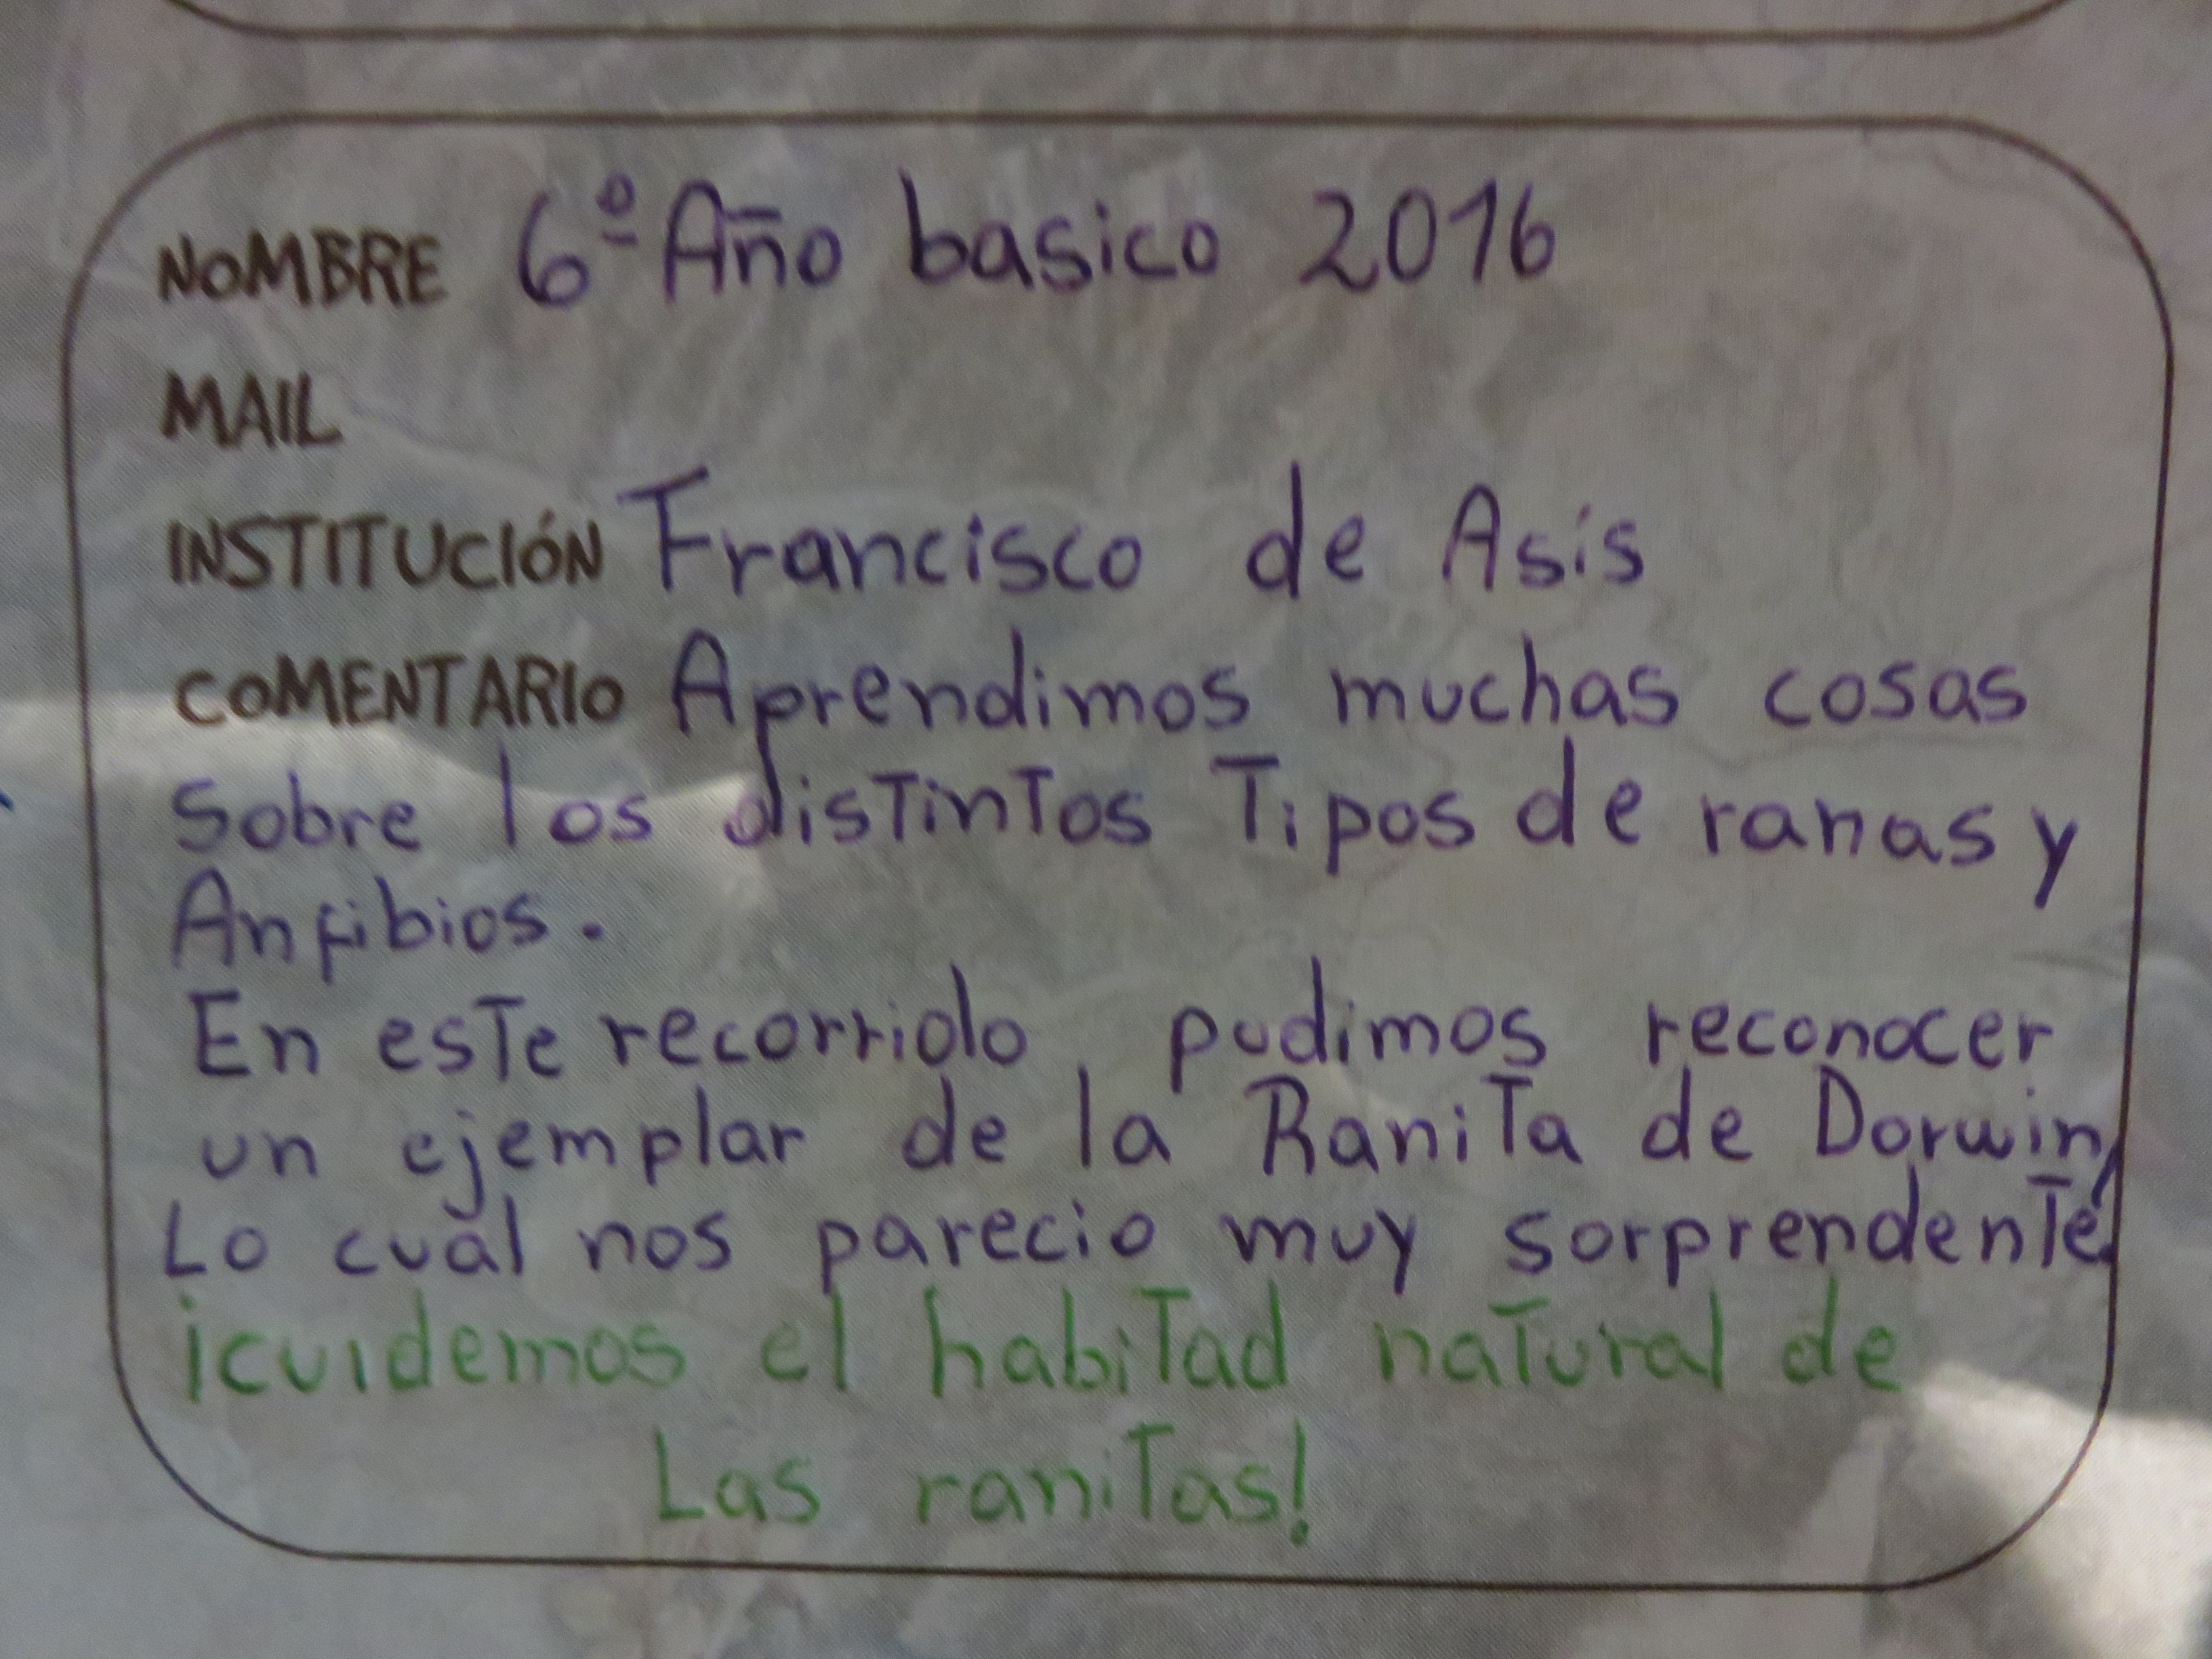 NOMBRE 6º Año basico 2016
MAIL
INSTITUCIÓN Francisco de Asis
COMENTARIO Aprendimos muchas cosas
Sobre los distintos Tipos de ranas y
Anfibios.
En este recorrido, pudimos reconocer
un ejemplar de la Ranita de Dorwin,
Lo cual nos parecio muy sorprendente!
¡cuidemos el habitad natural de
Las ranitas!